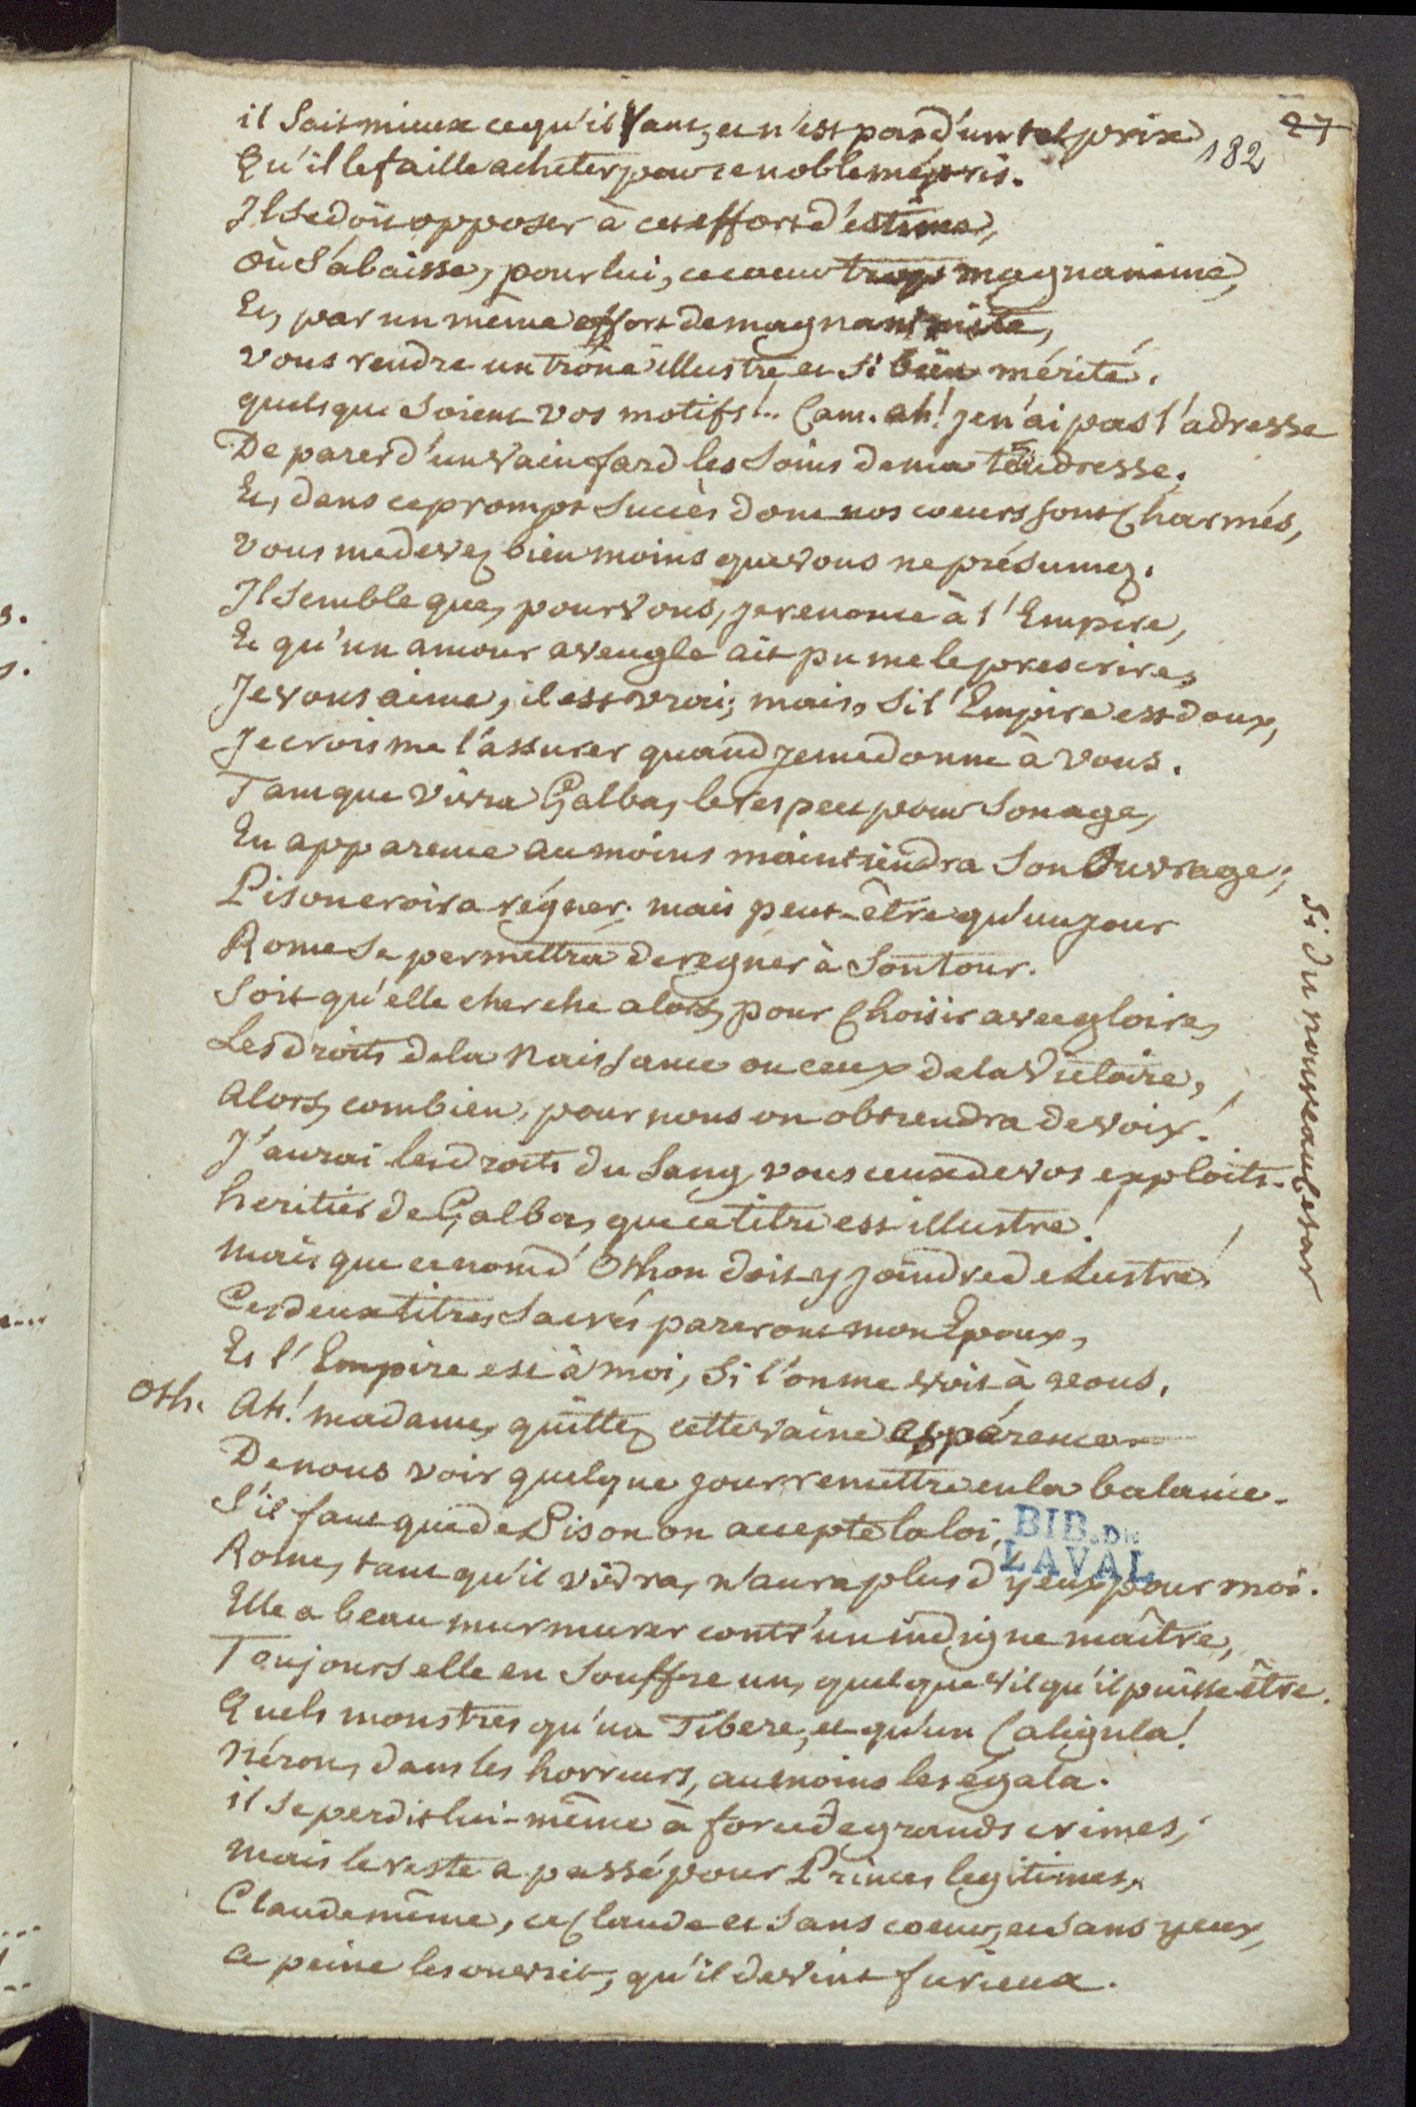 27
182
il Sait mieux ce qu'il Vaut, et n'est pas d'un tel prix
Qu'il le faille acheter par ce noble mépris.
Il Se doit opposer à cet effort d'estime,
où S'abaisse, pour lui, ce coeur trop magnanime,
Et, par un même effort de magnanimité,
vous rendre un trône illustre et Si bien mérité.
quels que Soient vos motifs!... Cam. ah! je n'ai pas l'adresse
De parer d'un vain fard les Soins de ma tendresse.
Et, dans ce prompt Succès dont nos coeurs sont Charmés,
vous me devez bien moins que vous ne présumez.
Il Semble que, pour vous, je renonce à l'Empire,
Et qu'un amour aveugle ait pu me le prescrire,
Je vous aime, il est vrai; mais, Si l'Empire est doux,
Je crois me l'assurer quand je me donne à vous.
Tant que vivra Galba, le respect pour Son age,
En apparence au moins maintiendra Son Ouvrage;
Pison croira régner; mais peut-être qu'un jour
Rome Se permettra de regner à Son tour.
Soit qu'elle cherche alors, pour Choisir avec gloire,
Les droits de la Naissance ou ceux de la Victoire,
Alors, combien, pour nous on obtiendra de voix!
J'aurai les droits du Sang, vous ceux de vos exploits.
heritier de Galba, que ce titre est illustre!
mais que ce nom d'Othon doit y joindre de Lustre!
Ces deux titres Sacrés pareront mon Epoux,
Et l'Empire est à moi, Si l'on me voit à vous.
Oth. Ah! madame, quittez cette vaine espérance
De nous voir quelque jour remettre en la balance.
S'il faut que de Pison on accepte la loi,
Rome, tant qu'il vivra, n'aura plus d'yeux pour moi.
Elle a beau murmurer contr'un indigne maître,
Toujours elle en Souffre un, quelque vil qu'il puisse être.
Quels monstres qu'un Tibere, et qu'un Caligula!
Néron, dans les horreurs, au moins les égala.
il Se perdit lui-même à force de grands crimes;
mais le reste a passé pour Princes legitimes,
Claude même, ce Claude et Sans coeur, et Sans yeux,
a peine les ouvrit, qu'il devint furieux.
Si du nouveau Cesar
BIB. DE
LAVAL